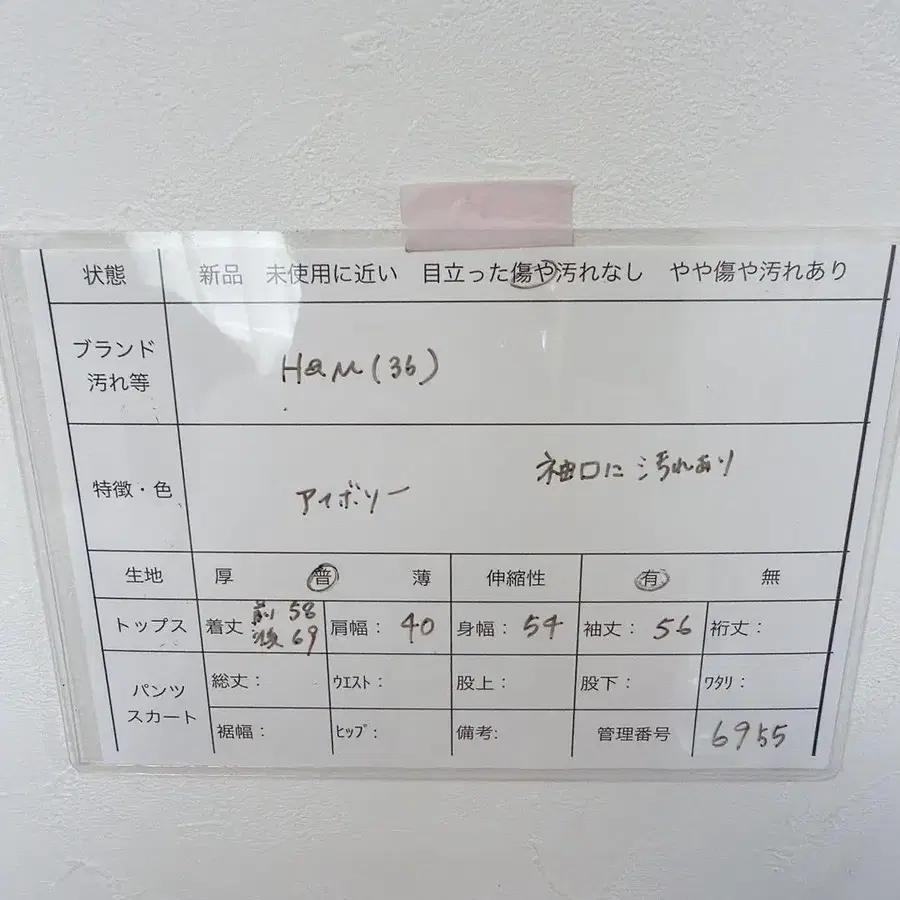 状態 新品 未使用に近い 目立った傷や汚れなし やや傷や汚れあり
ブランド
汚れ等
H&M(36)
特徴・色
袖口に汚れあり
アイボリー
生地 厚 普 薄 伸縮性 有 無
トップス 着丈 前58 肩幅: 40 身幅: 54 袖丈: 56 裄丈:
後69
パンツ
スカート
総丈: ウエスト: 股上: 股下: ワタリ:
裾幅: ヒップ: 備考: 管理番号 6955